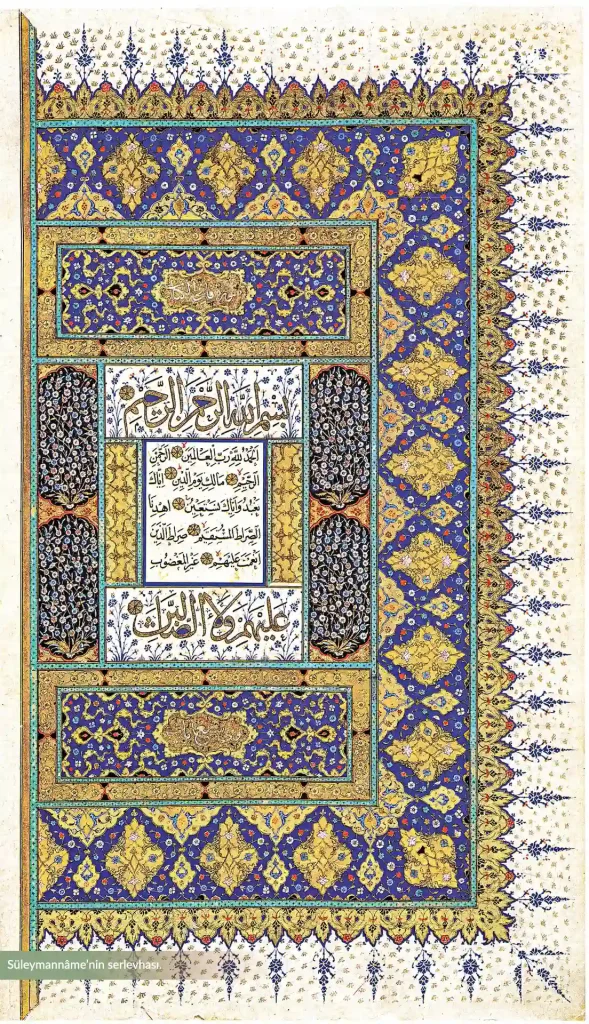 بِسْمِ اللَّهِ الرَّحْمَنِ الرَّحِيمِ
اَلْحَمْدُ لِلَّهِ رَبِّ الْعَالَمِينَ الرَّحْمَنِ
الرَّحِيمِ مَالِكِ يَوْمِ الدِّينِ اِيَّاكَ
نَعْبُدُ وَاِيَّاكَ نَسْتَعِينُ اِهْدِنَا
الصِّرَاطَ الْمُسْتَقِيمَ صِرَاطَ الَّذِينَ
اَنْعَمْتَ عَلَيْهِمْ غَيْرِ الْمَغْضُوبِ
عَلَيْهِمْ وَلَا الضَّالِّينَ
Süleymannâme'nin serlevhası.